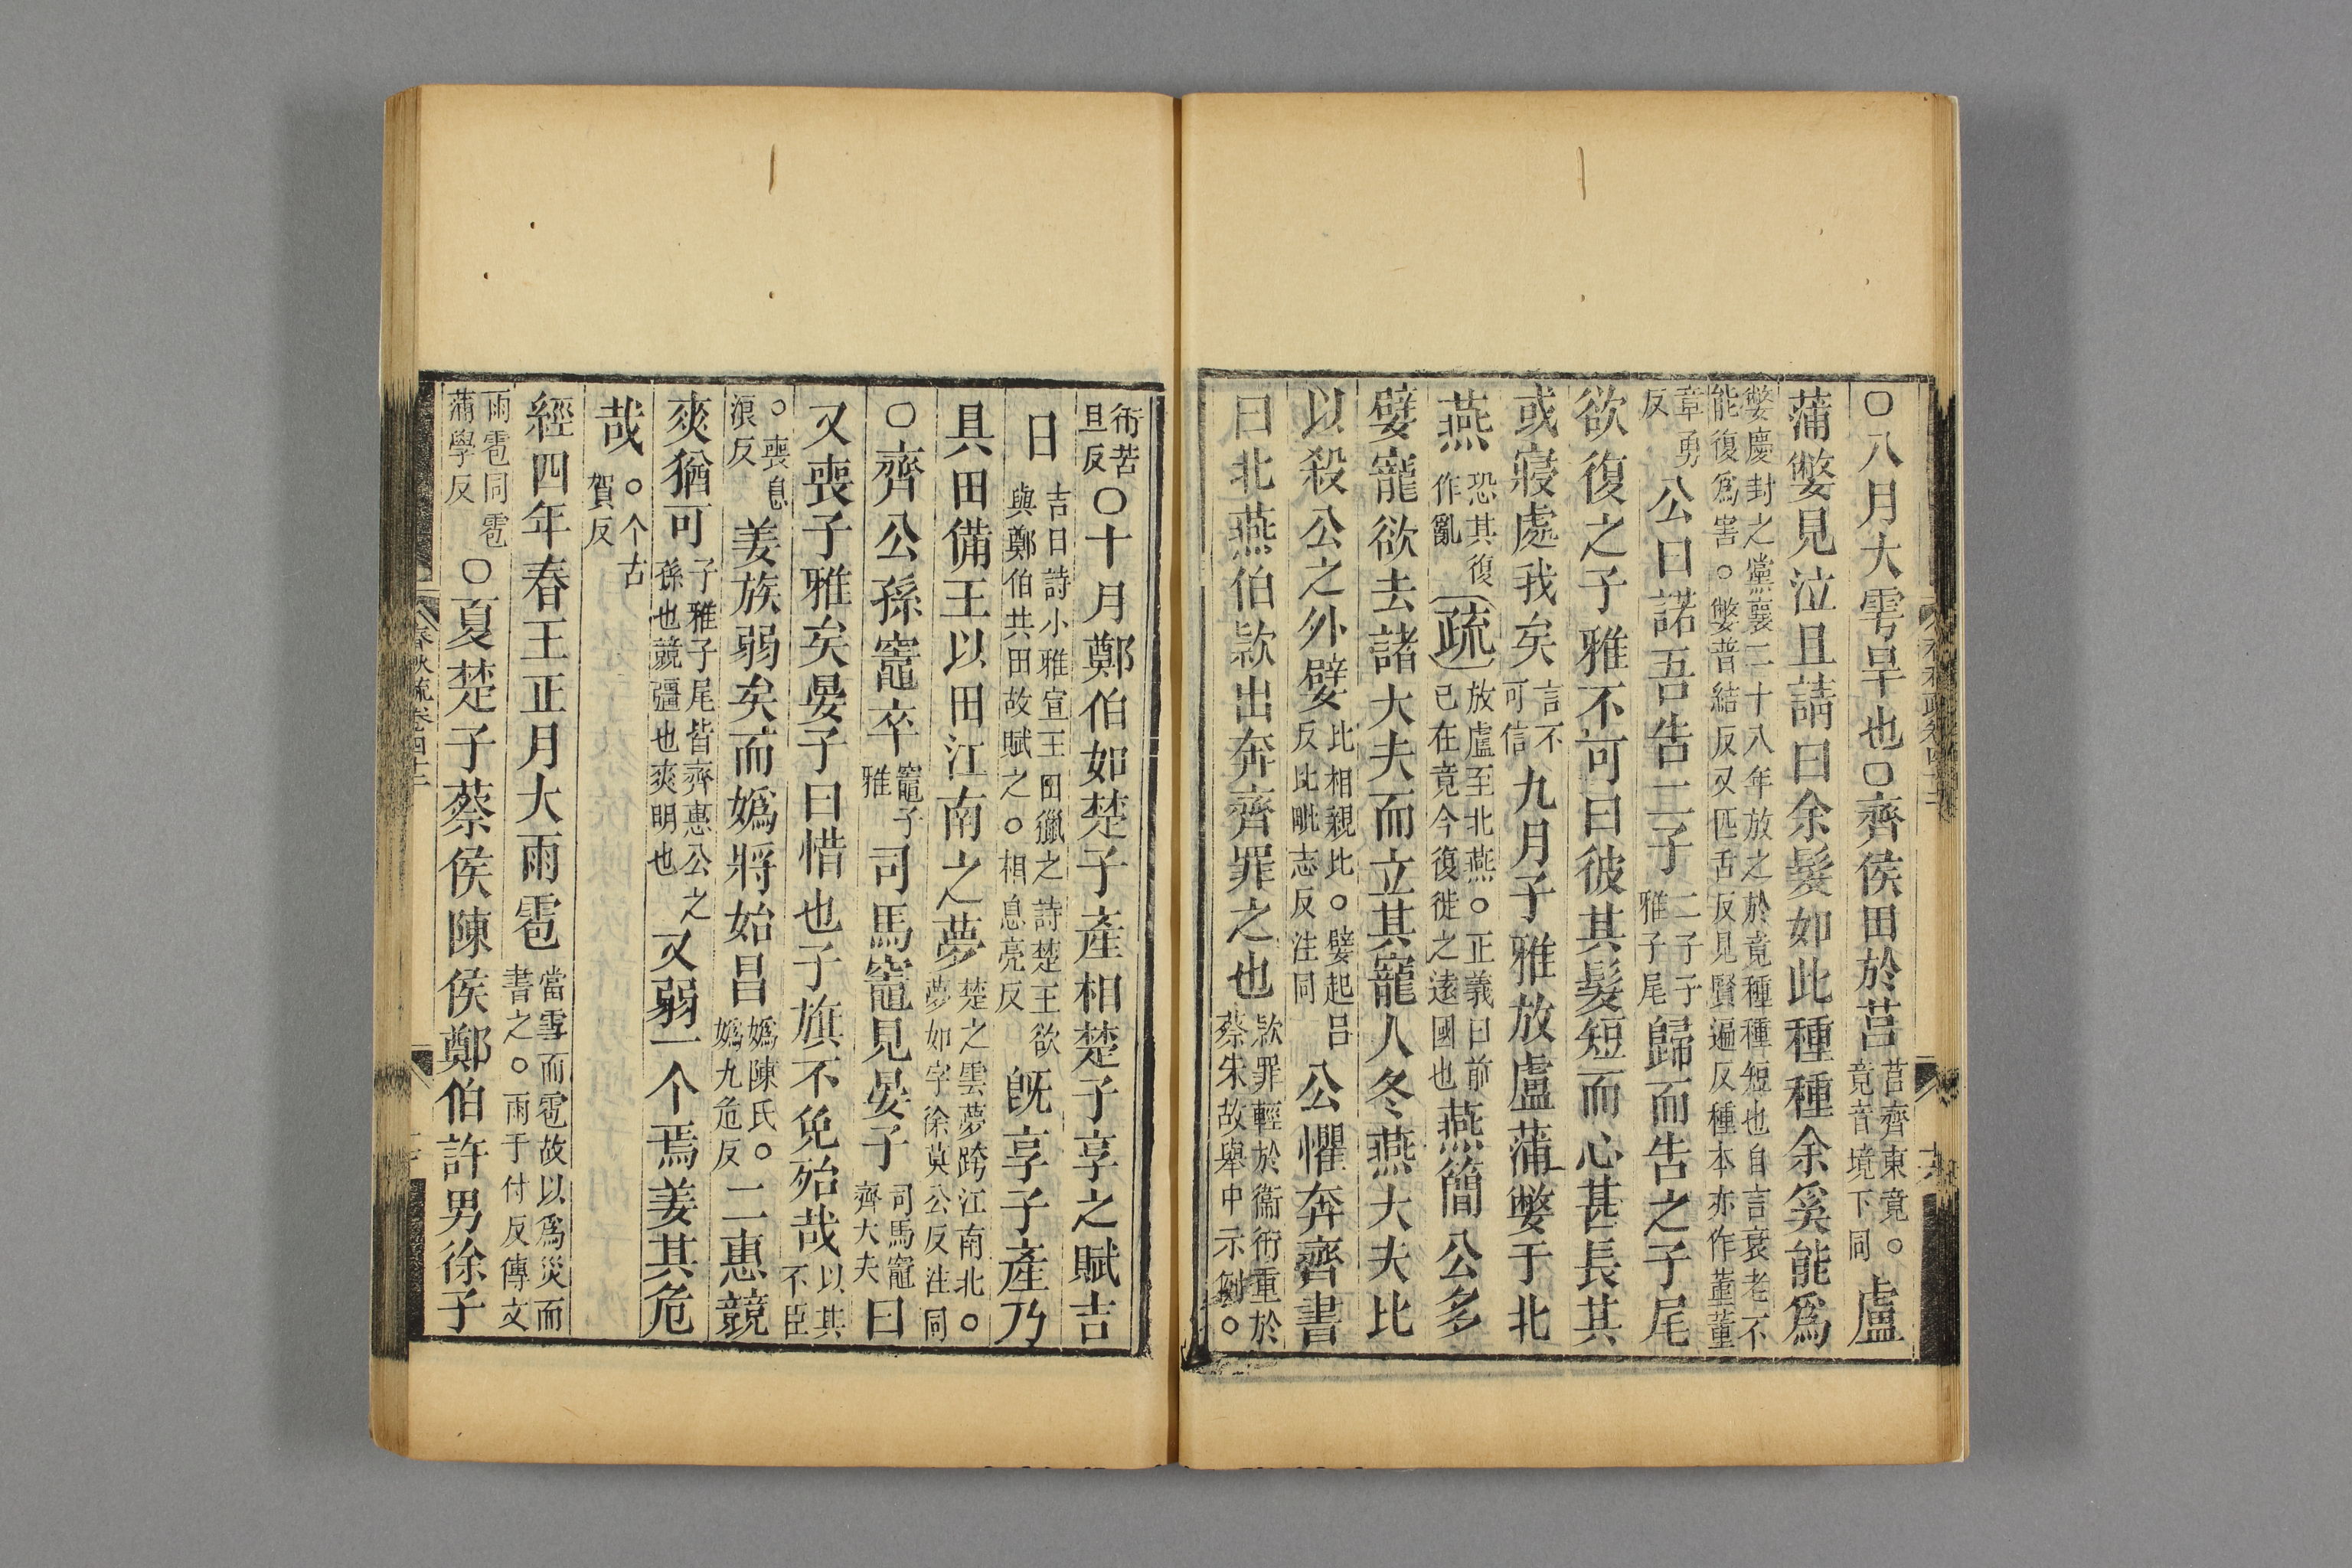 春秋疏卷四十二
十六
○八月大雩旱也○齊侯田於莒莒齊東竟○竟音境下同盧
蒲嫳見泣且請曰余髮如此種種余奚能爲
嫳慶封之黨襄二十八年放之於竟種種短也自言衰老不
能復爲害○嫳普結反又匹舌反見賢遍反種本亦作董董
章勇反公曰諾吾告二子二子子雅子尾歸而告之子尾
欲復之子雅不可曰彼其髮短而心甚長其
或寢處我矣言不可信九月子雅放盧蒲嫳于北
燕恐其復作亂疏放盧至北燕○正義曰前已在竟今復徙之逺國也燕簡公多
嬖寵欲去諸大夫而立其寵人冬燕大夫比
以殺公之外嬖比相親比○嬖起呂反比毗志反注同公懼奔齊書
曰北燕伯款出奔齊罪之也款罪輕於衞衎重於蔡朱故舉中示例○
衎苦旦反○十月鄭伯如楚子產相楚子享之賦吉
日吉日詩小雅宣王田獵之詩楚王欲與鄭伯共田故賦之○相息亮反旣享子產乃
具田備王以田江南之夢楚之雲夢跨江南北○夢如字徐莫公反注同
○齊公孫竈卒竈子雅司馬竈見晏子司馬竈齊大夫曰
又喪子雅矣晏子曰惜也子旗不免殆哉以其不臣
○喪息浪反姜族弱矣而嬀將始昌嬀陳氏○嬀九危反二惠競
爽猶可子雅子尾皆齊惠公之孫也競彊也爽明也又弱一个焉姜其危
哉○个古賀反
經四年春王正月大雨雹當雪而雹故以爲災而書之○雨于付反傳文
雨雹同雹蒲學反○夏楚子蔡侯陳侯鄭伯許男徐子
春秋疏卷四十二